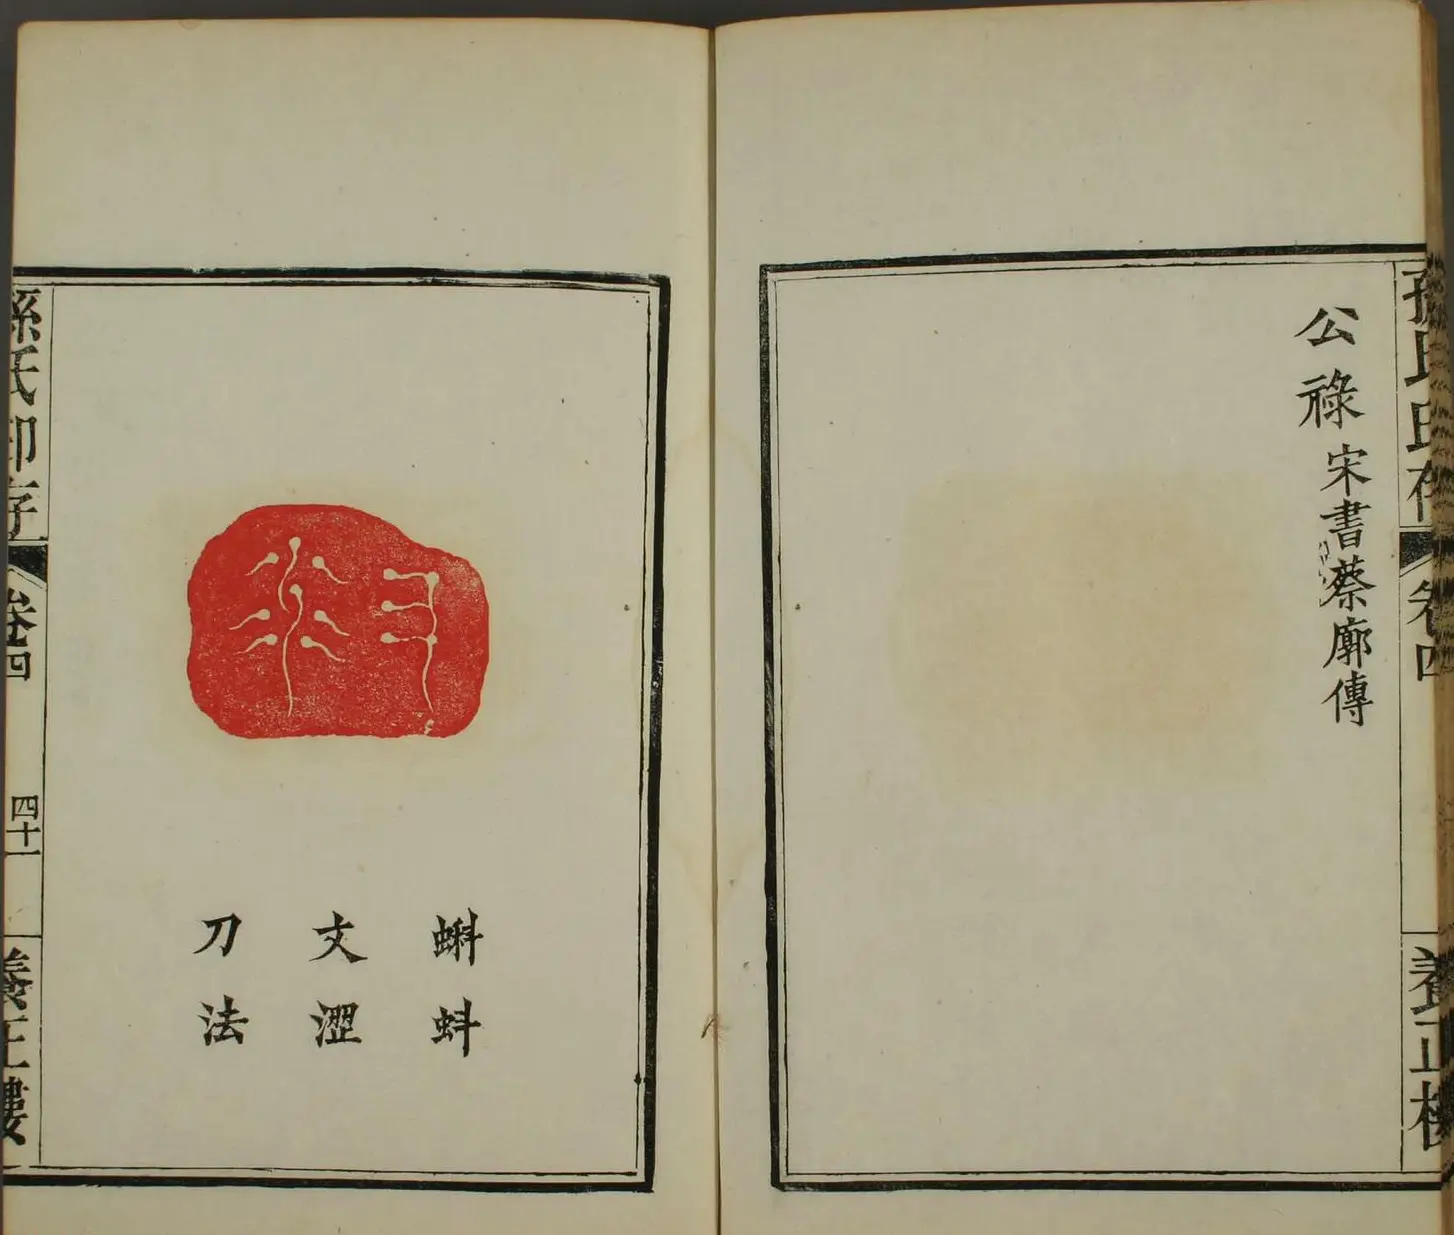 孫氏印存
卷四
養正樓
公祿宋書蔡廓傳
蝌蚪
文澀
刀法
孫氏印存
卷四
四十一
養正樓